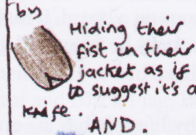 by
Hiding their
fist in their
jacket as if
to suggest it's a
knife.
AND.